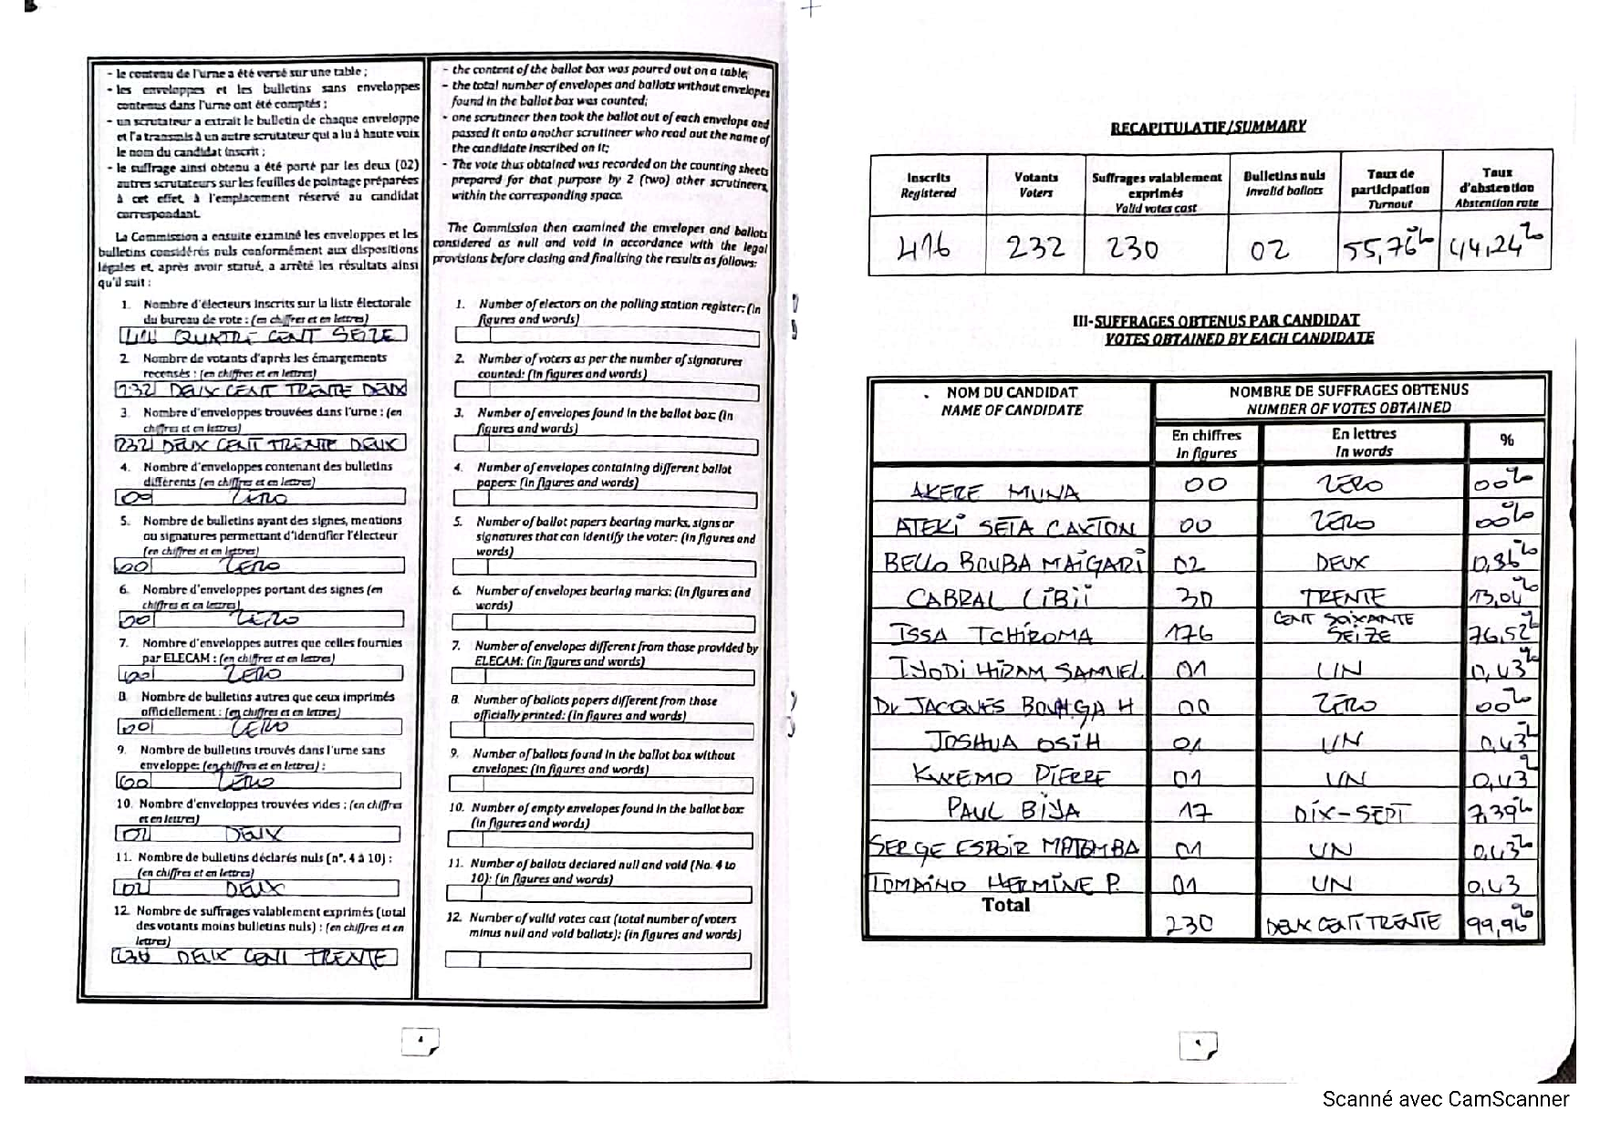 - le contenu de l'urne a été versé sur une table ;
- les enveloppes et les bulletins sans enveloppes
contenus dans l'urne ont été comptés ;
- un scrutateur a extrait le bulletin de chaque enveloppe
et l'a transmis à un autre scrutateur qui a lu à haute voix
le nom du candidat inscrit ;
- le suffrage ainsi obtenu a été porté par les deux (02)
autres scrutateurs sur les feuilles de pointage préparées
à cet effet, à l'emplacement réservé au candidat
correspondant.
La Commission a ensuite examiné les enveloppes et les
bulletins considérés nuls conformément aux dispositions
légales et, après avoir statué, a arrêté les résultats ainsi
qu'il suit :
1. Nombre d'électeurs inscrits sur la liste électorale
du bureau de vote : (en chiffres et en lettres)
QUATRE CENT SEIZE
2. Nombre de votants d'après les émargements
recensés : (en chiffres et en lettres)
232 DEUX CENT TRENTE DEUX
3. Nombre d'enveloppes trouvées dans l'urne : (en
chiffres et en lettres)
232 DEUX CENT TRENTE DEUX
4. Nombre d'enveloppes contenant des bulletins
différents (en chiffres et en lettres)
00 ZERO
5. Nombre de bulletins ayant des signes, mentions
ou signatures permettant d'identifier l'électeur
(en chiffres et en lettres)
00 ZERO
6. Nombre d'enveloppes portant des signes (en
chiffres et en lettres)
00 ZERO
7. Nombre d'enveloppes autres que celles fournies
par ELECAM : (en chiffres et en lettres)
00 ZERO
8. Nombre de bulletins autres que ceux imprimés
officiellement : (en chiffres et en lettres)
00 ZERO
9. Nombre de bulletins trouvés dans l'urne sans
enveloppe: (en chiffres et en lettres) :
00 ZERO
10. Nombre d'enveloppes trouvées vides : (en chiffres
et en lettres)
02 DEUX
11. Nombre de bulletins déclarés nuls (n°. 4 à 10) :
(en chiffres et en lettres)
02 DEUX
12. Nombre de suffrages valablement exprimés (total
des votants moins bulletins nuls) : (en chiffres et en
lettres)
230 DEUX CENT TRENTE
- the content of the ballot box was poured out on a table;
- the total number of envelopes and ballots without envelopes
found in the ballot box was counted;
- one scrutineer then took the ballot out of each envelope and
passed it onto another scrutineer who read out the name of
the candidate inscribed on it;
- The vote thus obtained was recorded on the counting sheets
prepared for that purpose by 2 (two) other scrutineers,
within the corresponding space.
The Commission then examined the envelopes and ballots
considered as null and void in accordance with the legal
provisions before closing and finalising the results as follows:
1. Number of electors on the polling station register: (in
figures and words)
2. Number of voters as per the number of signatures
counted: (in figures and words)
3. Number of envelopes found in the ballot box: (in
figures and words)
4. Number of envelopes containing different ballot
papers: (in figures and words)
5. Number of ballot papers bearing marks, signs or
signatures that can identify the voter: (in figures and
words)
6. Number of envelopes bearing marks: (in figures and
words)
7. Number of envelopes different from those provided by
ELECAM: (in figures and words)
8. Number of ballots papers different from those
officially printed: (in figures and words)
9. Number of ballots found in the ballot box without
envelopes: (in figures and words)
10. Number of empty envelopes found in the ballot box:
(in figures and words)
11. Number of ballots declared null and void (No. 4 to
10): (in figures and words)
12. Number of valid votes cast (total number of voters
minus null and void ballots): (in figures and words)
4
RECAPITULATIF/SUMMARY
Inscrits Registered | Votants Voters | Suffrages valablement exprimés Valid votes cast | Bulletins nuls Invalid ballots | Taux de participation Turnout | Taux d'abstention Abstention rate
416 232 230 02 55,76% 44,24%
III-SUFFRAGES OBTENUS PAR CANDIDAT
VOTES OBTAINED BY EACH CANDIDATE
NOM DU CANDIDAT NOMBRE DE SUFFRAGES OBTENUS
NAME OF CANDIDATE NUMBER OF VOTES OBTAINED
En chiffres En lettres %
In figures In words
AKERE MUNA 00 ZERO 00%
ATEKI SETA CAXTON 00 ZERO 00%
BELLO BOUBA MAÏGARI 02 DEUX 0,86%
CABRAL LIBII 30 TRENTE 13,04%
ISSA TCHIROMA 176 CENT SOIXANTE SEIZE 76,52%
IYODI HIRAM SAMUEL 01 UN 0,43%
Dr JACQUES BOUHGA H 00 ZERO 00%
JOSHUA OSIH 01 UN 0,43%
KWEMO PIERRE 01 UN 0,43%
PAUL BIYA 17 DIX-SEPT 7,39%
SERGE ESPOIR MATOMBA 01 UN 0,43%
TOMAINO HERMINE P. 01 UN 0,43
Total 230 DEUX CENT TRENTE 99,96%
Scanné avec CamScanner